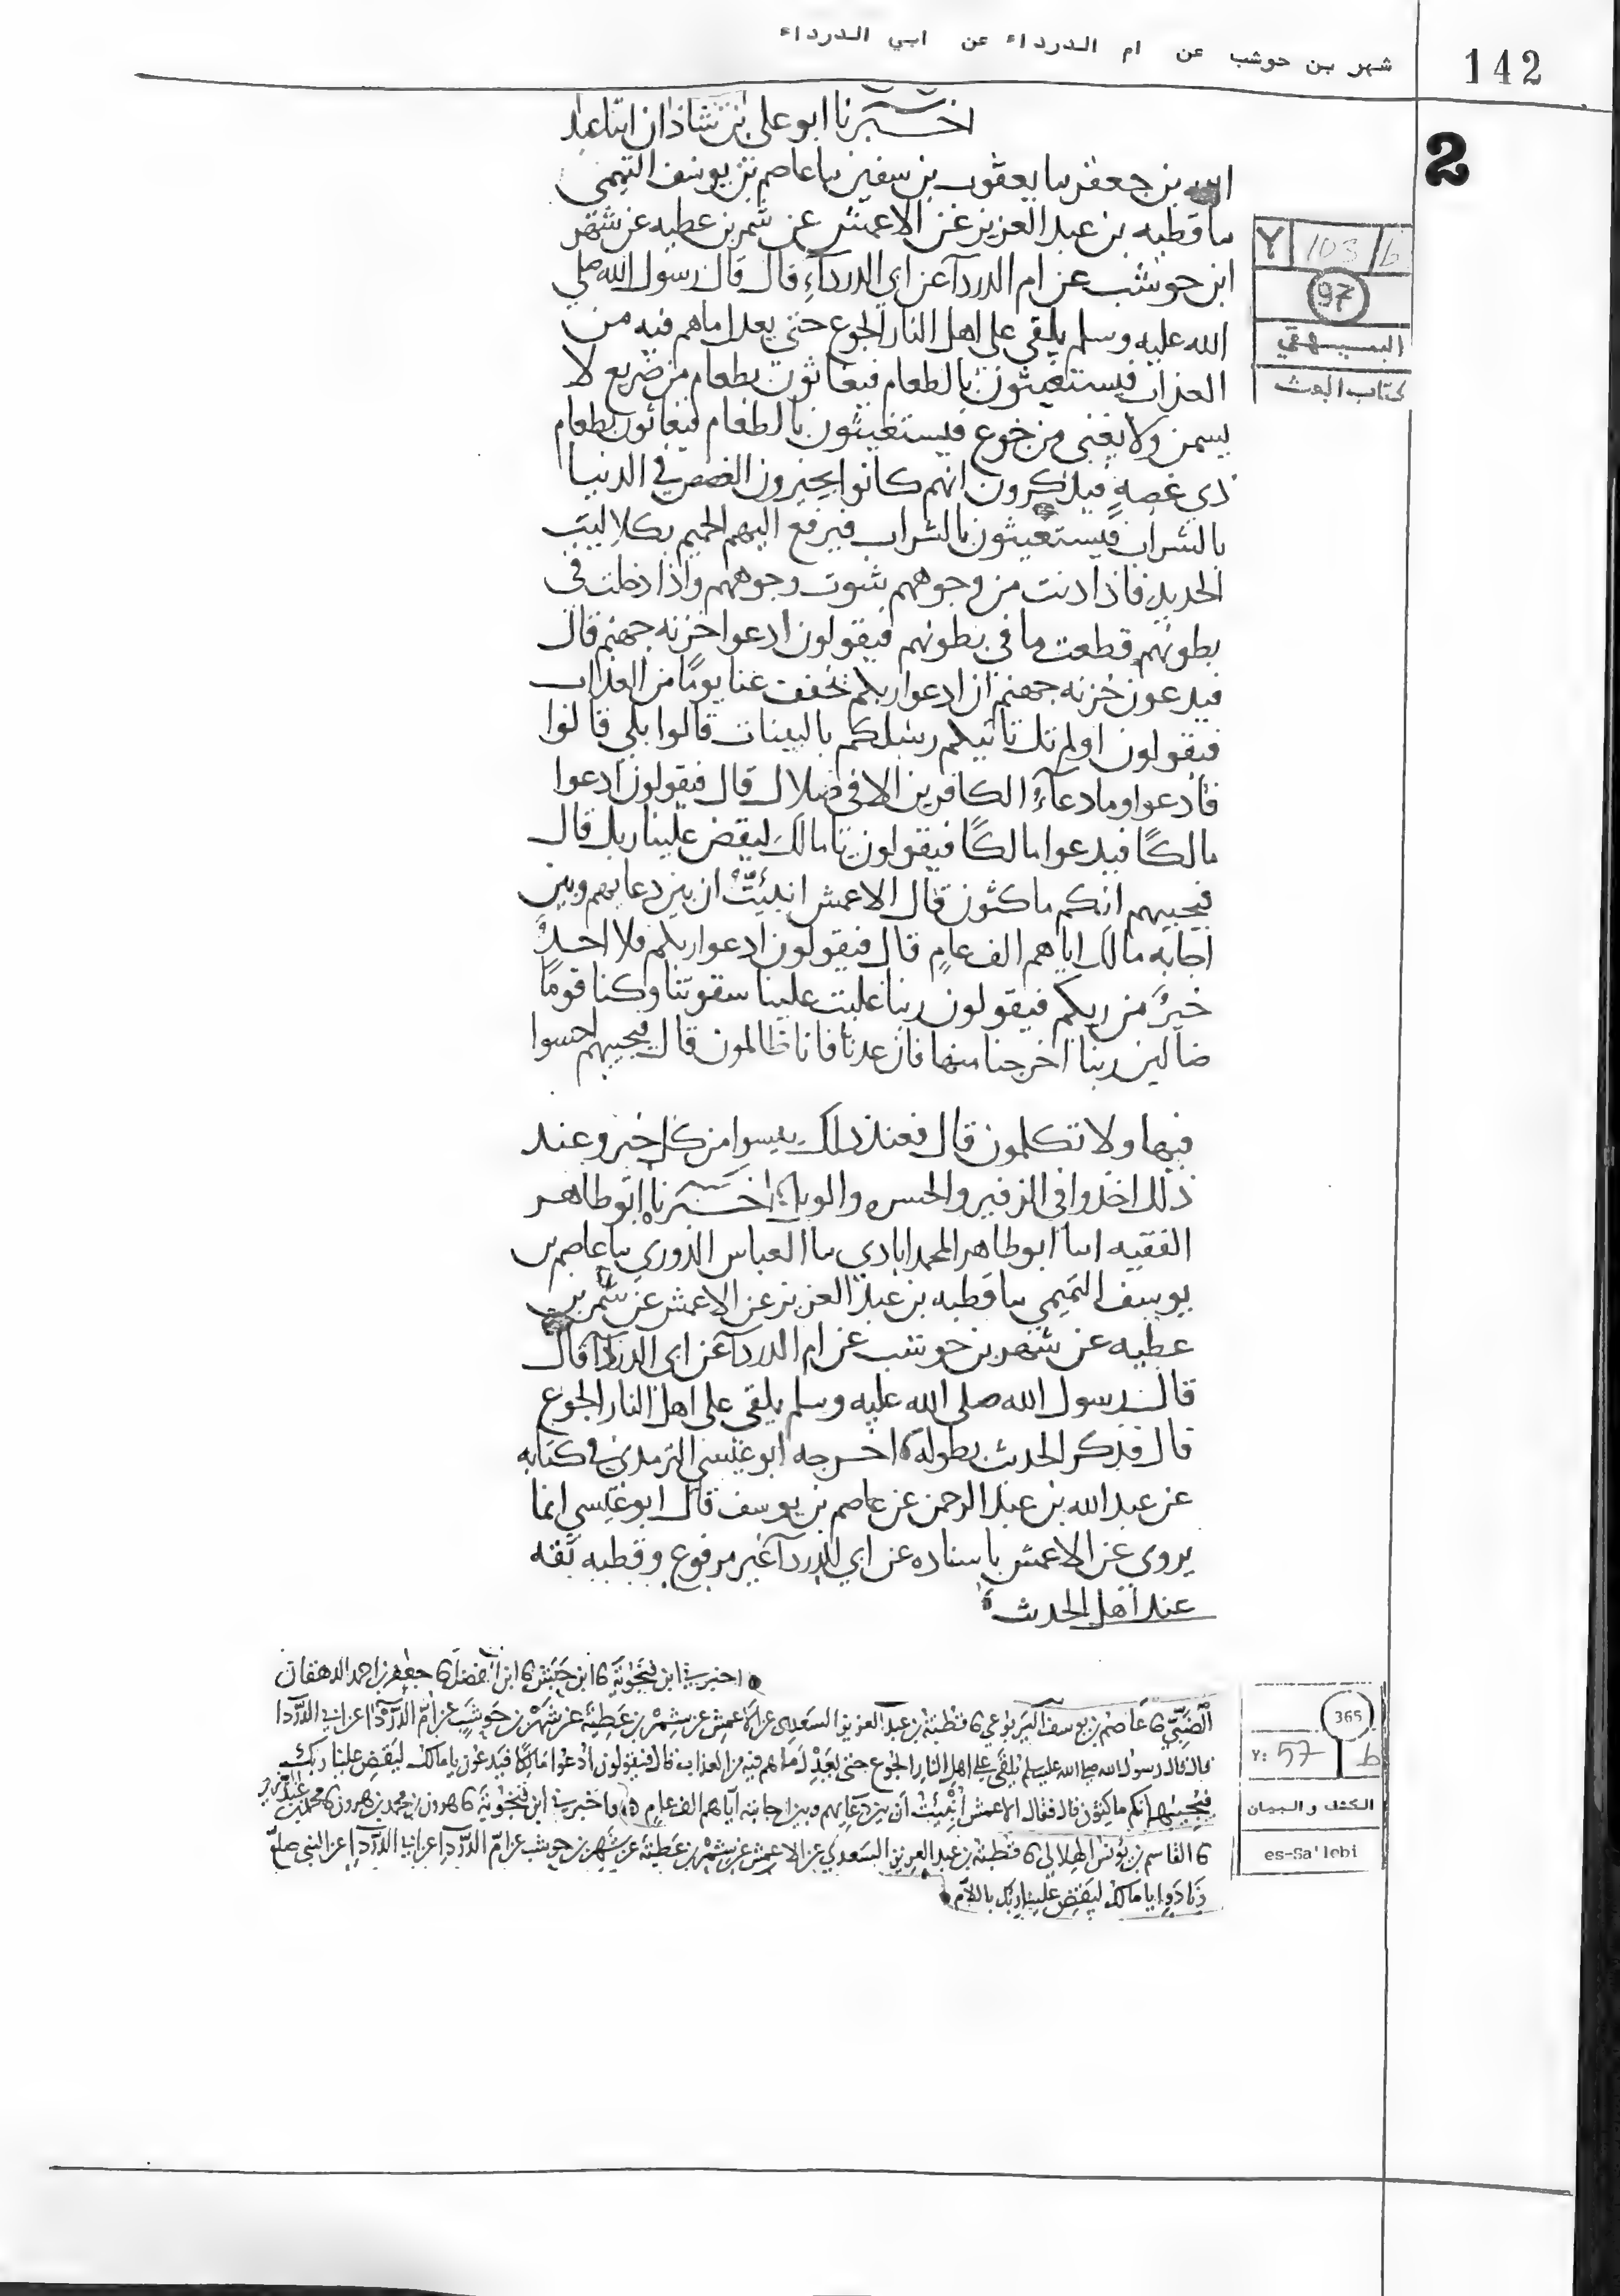 142
شهر بن حوشب عن ام الدرداء عن ابي الدرداء
2
Y 103/b
97
البيهقي
كتاب البعث
اخبرنا ابو علي بن شاذان ابنا عبد
الله بن جعفر سا يعقوب بن سفين سا عاصم بن يوسف التميمي
سا قطبه بن عبد العزيز عن الاعمش عن شمر بن عطيه عن شهر
ابن حوشب عن ام الدردآ عن ابي الدردآء قال قال رسول الله صلي
الله عليه وسلم يلقي على اهل النار الجوع حتى يعدل ما هم فيه من
العذاب فيستغيثون بالطعام فيغاثون بطعام من ضريع لا
يسمن ولا يغني من جوع فيستغيثون بالطعام فيغاثون بطعام
ذي غصةٍ فيذكرون انهم كانوا يجيزون الغصص في الدنيا
بالشراب فيستغيثون بالشراب فيرفع اليهم الحميم بكلاليب
الحديد فاذا دنت من وجوههم شوت وجوههم واذا دخلت في
بطونهم قطعت ما في بطونهم فيقولون ادعوا خزنه جهنم قال
فيدعون خزنه جهنم ان ادعوا ربكم يخفف عنا يومًا من العذاب
فيقولون اولم تك تاتيكم رسلكم بالبينات قالوا بلي قالوا
فادعوا وما دعآء الكافرين الا في ضلال قال فيقولون ادعوا
مالكًا فيدعوا مالكًا فيقولون يا مالك ليقض علينا ربك قال
فيجيبهم انكم ماكثون قال الاعمش انبئت ان بين دعايهم وبين
اجابه مالك اياهم الف عام قال فيقولون ادعوا ربكم فلا احدٌ
خيرٌ من ربكم فيقولون ربنا غلبت علينا شقوتنا وكنا قومًا
ضالين ربنا اخرجنا منها فان عدنا فانا ظالمون قال فيجيبهم اخسوا
فيها ولا تكلمون قال فعند ذلك ييسوا من كل خير وعند
ذلك اخذوا في الزفير والحسره والويل اخبرناه ابو طاهر
الفقيه ابنا ابو طاهر المحمداباذي سا العباس الدوري سا عاصم بن
يوسف التميمي سا قطبه بن عبد العزيز عن الاعمش عن شمر بن
عطيه عن شهر بن حوشب عن ام الدردآ عن ابي الدردآ قال
قال رسول الله صلى الله عليه وسلم يلقي على اهل النار الجوع
قال فذكر الحديث بطوله اخرجه ابو عيسي الترمذي في كتابه
عن عبد الله بن عبد الرحمن عن عاصم بن يوسف قال ابو عيسي انما
يروى عن الاعمش باسناده عن ابي الدردآ غير مرفوع وقطبه ثقه
عند اهل الحديث
365
Y: 57 b
الكشف والبيان
es-Sa'lebi
اخبرني ابن فنجوية ابن حبش ابن الفضل جعفر بن احمد الدهقان
الضبي عاصم بن يوسف اليربوعي قطبة بن عبد العزيز السعدي عن الاعمش عن شمر بن عطية عن شهر بن حوشب عن ام الدردا عن ابي الدردا
قال قال رسول الله صلى الله عليه وسلم يلقى على اهل النار الجوع حتى يعدل ما هم فيه من العذاب قال فيقولون ادعوا مالكا فيدعون يا مالك ليقض علينا ربك
فيجيبهم انكم ماكثون قال فقال الاعمش انبئت ان بين دعايهم وبين اجابته اياهم الف عام واخبرني ابن فنجوية هرون بن محمد بن هرون محمد بن عبد العزيز
القاسم بن يونس الهلالي قطبة بن عبد العزيز السعدي عن الاعمش عن شمر بن عطية عن شهر بن حوشب عن ام الدردا عن ابي الدردا عن النبي صلعم
ونادوا يا مالك ليقض علينا ربك باللام